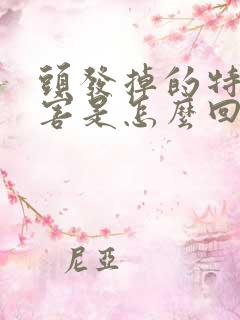 頭發掉的特
害是怎麼回
尼亞